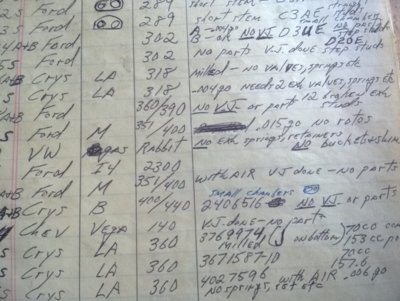 S Ford 289 short stem
Ford 289 short stem C3AE small chambers
S Ford 302 A - .010 go NO VJ D3UE no parts
A+B Ford B - ok D2OE step studs
Ford 302 No parts VJ done step studs
A+B Crys LA 318 Milled - no valves, springs etc
Crys LA 318 .004 go need 2 exh valves, springs etc
A+B Ford 360/390 NO VJ or parts 12 broken exh studs
S Ford M 351/400 .015 go no rotos
VW Rabbit No exh springs, retainers NO buckets + shims
Ford I4 2300
A+B Ford M 351/400 with AIR VJ done - no parts
A+B Crys B 400/440 small chambers 2406516 NO VJ or parts
Chev Vega 140 VJ done - no parts
S Crys LA 360 3769974 (J on bottom) 70cc Milled 153cc
S Crys LA 360 3671587-10 70cc 157.6
S Crys LA 360 4027596 with AIR .006 go
No springs, ret etc